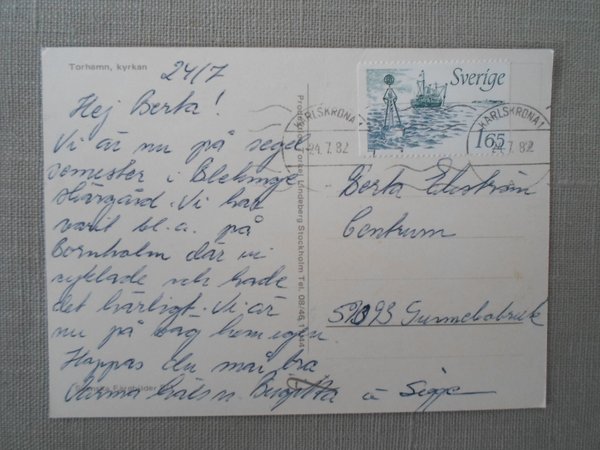 Torhamn, kyrkan
24/7
Hej Berta!
Vi är nu på segel
semester i Blekinge
skärgård. Vi har
varit bl.a. på
Bornholm där vi
cyklade och hade
det härligt. Vi är
nu på väg hem igen.
Hoppas du mår bra
Varma hälsn Birgitta o Sigge
Lindeberg Stockholm Tel. 08/46
Sverige
165
KARLSKRONA 1
24.7.82
KARLSKRONA 1
24.7.82
Berta Ekström
Centrum
590 93 Gunnebobruk